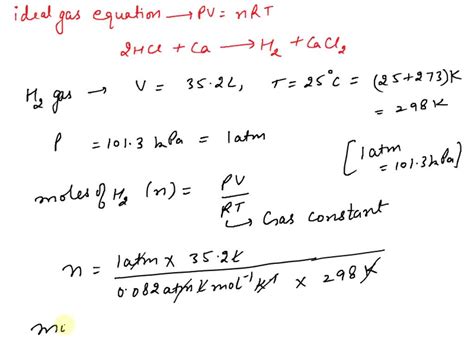 ideal gas equation → PV = nRT
2HCl + Ca → H₂ + CaCl₂
H₂ gas → V = 35.2L, T = 25°C = (25+273)K
= 298K
P = 101.3 kPa = 1atm
[1atm = 101.3 kPa]
moles of H₂ (n) = PV/RT
↳ Gas constant
n = 1atm × 35.2L / 0.082 atm L mol⁻¹ K⁻¹ × 298K
mo